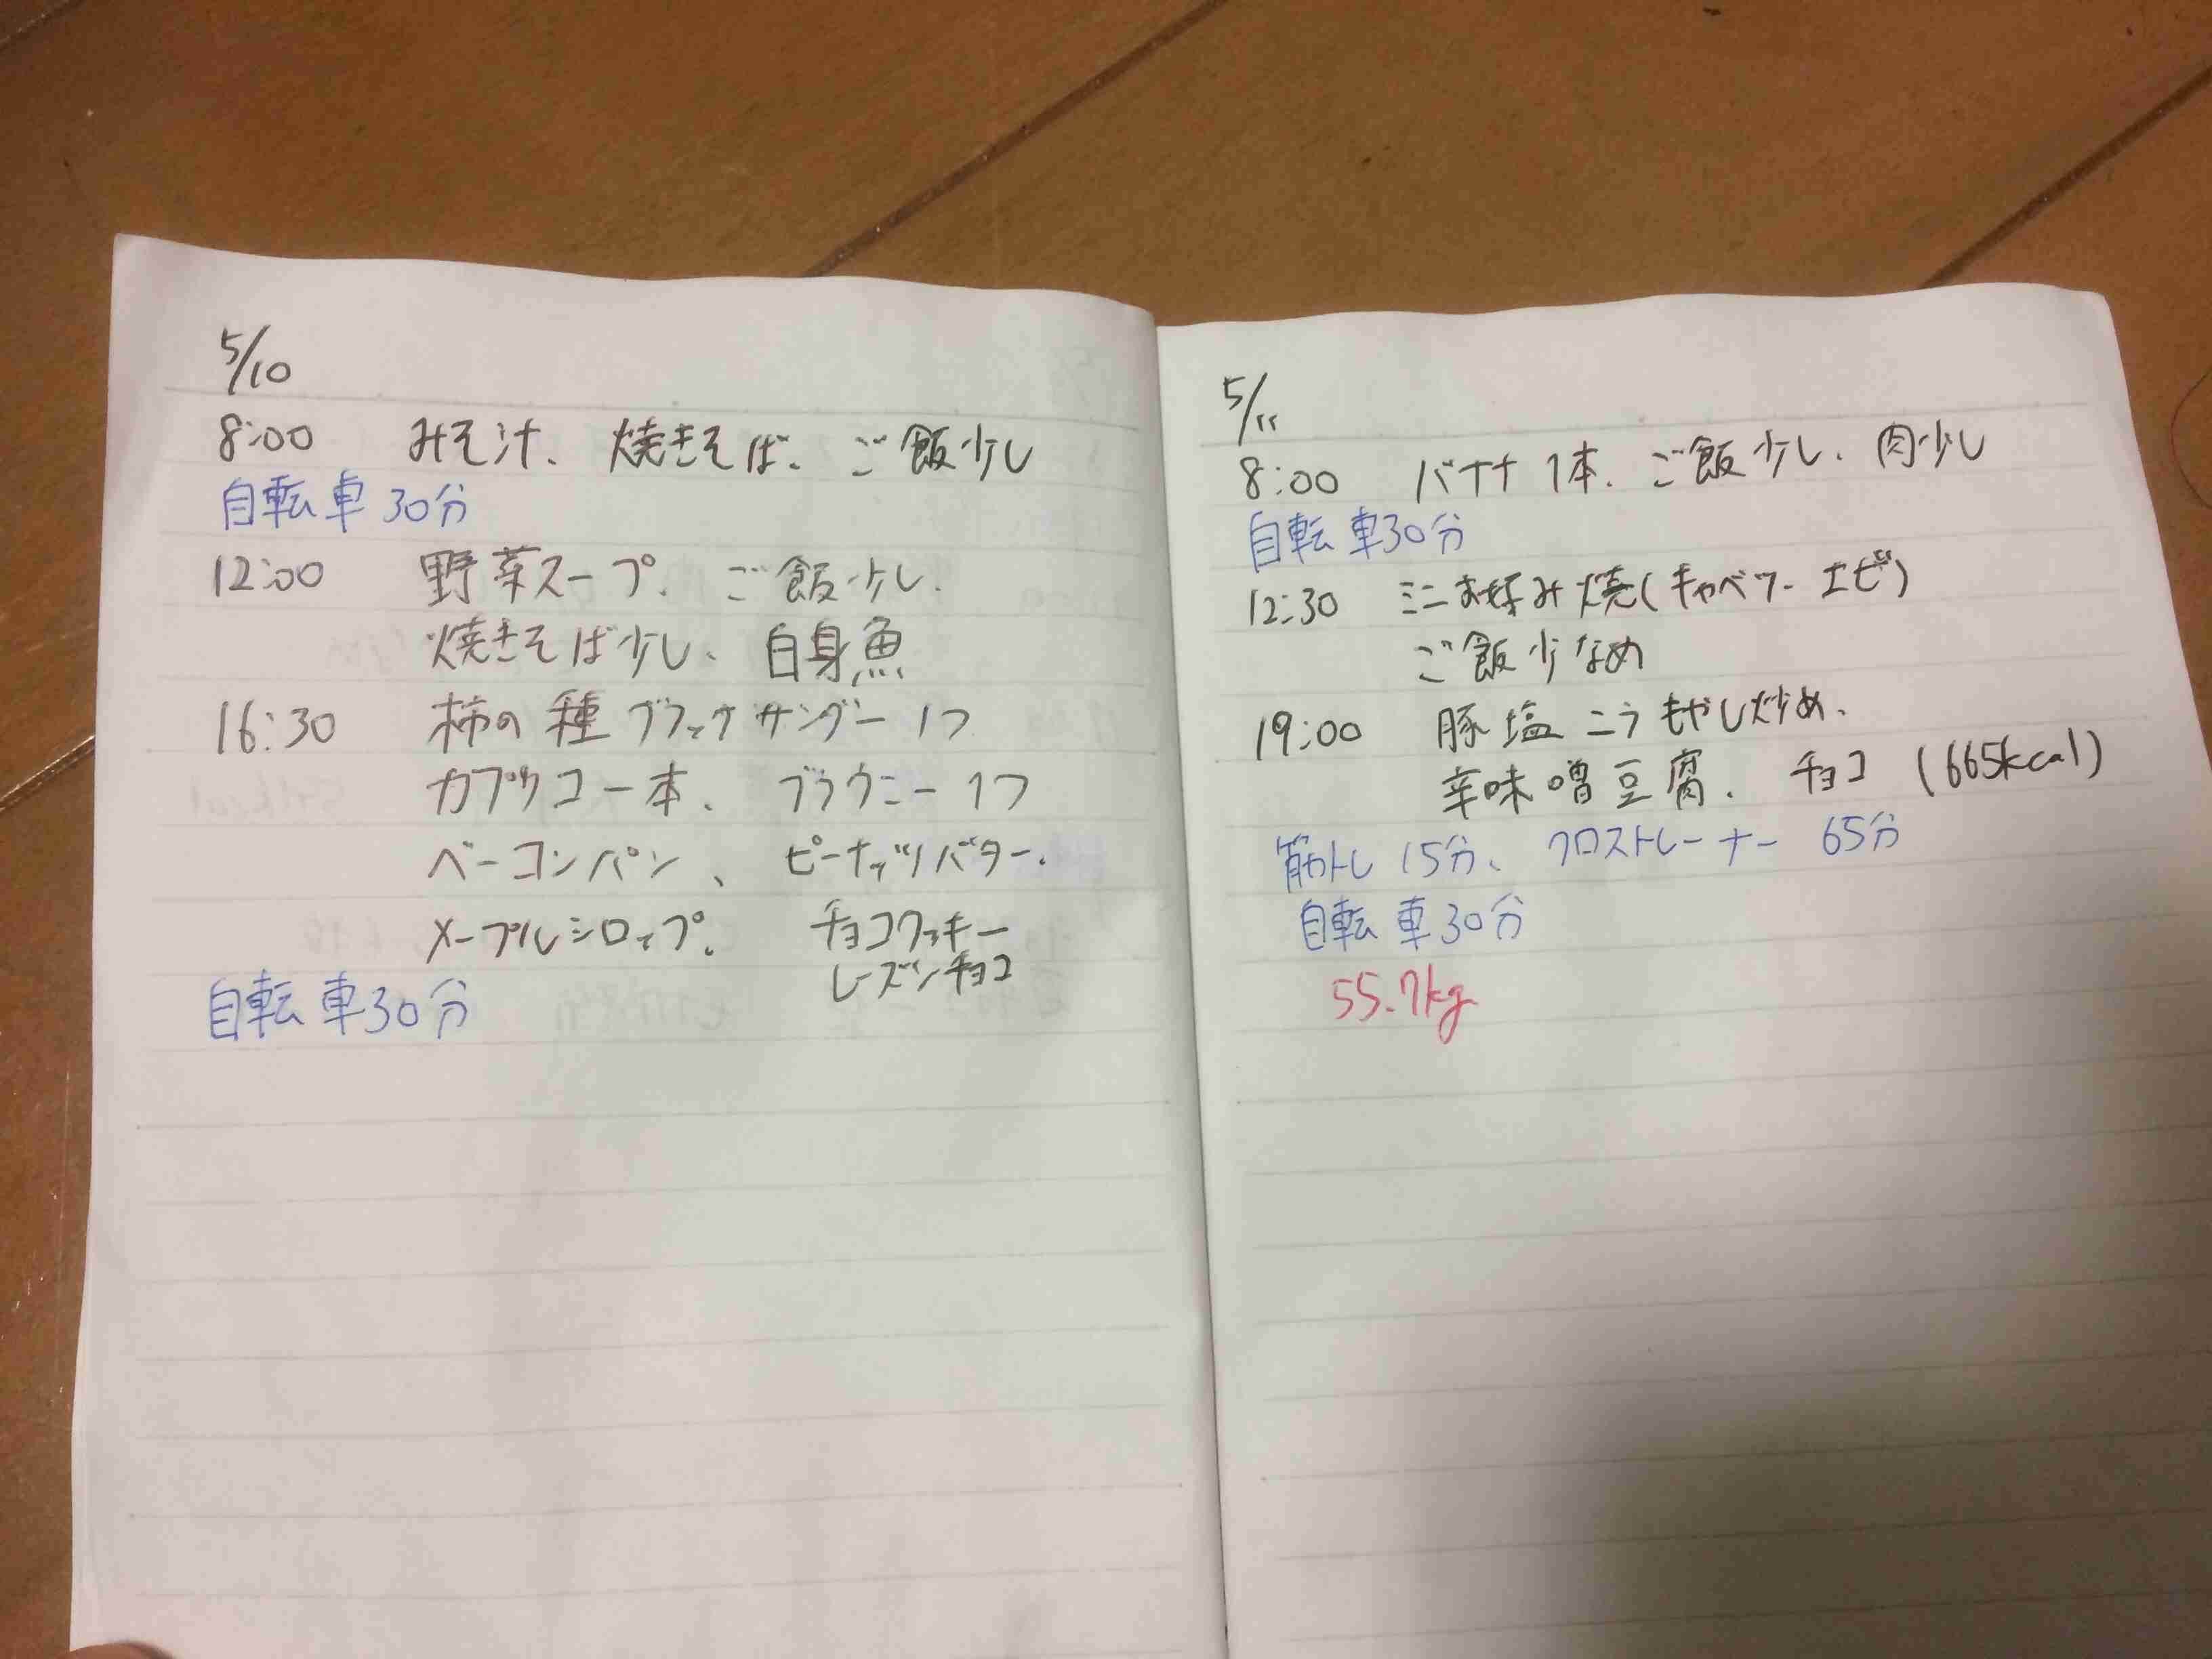 5/10
8:00 みそ汁、焼きそば、ご飯少し
自転車30分
12:00 野菜スープ、ご飯少し、
焼きそば少し、白身魚
16:30 柿の種 ブラックサンダー1つ
カプリコ一本、ブラウニー1つ
ベーコンパン、ピーナッツバター、
メープルシロップ、チョコクッキー
レーズンチョコ
自転車30分
5/11
8:00 バナナ1本、ご飯少し、肉少し
自転車30分
12:30 ミニお好み焼(キャベツー エビ)
ご飯少なめ
19:00 豚塩こうもやし炒め、
辛味噌豆腐、チョコ (665kcal)
筋トレ 15分、クロストレーナー 65分
自転車30分
55.7kg